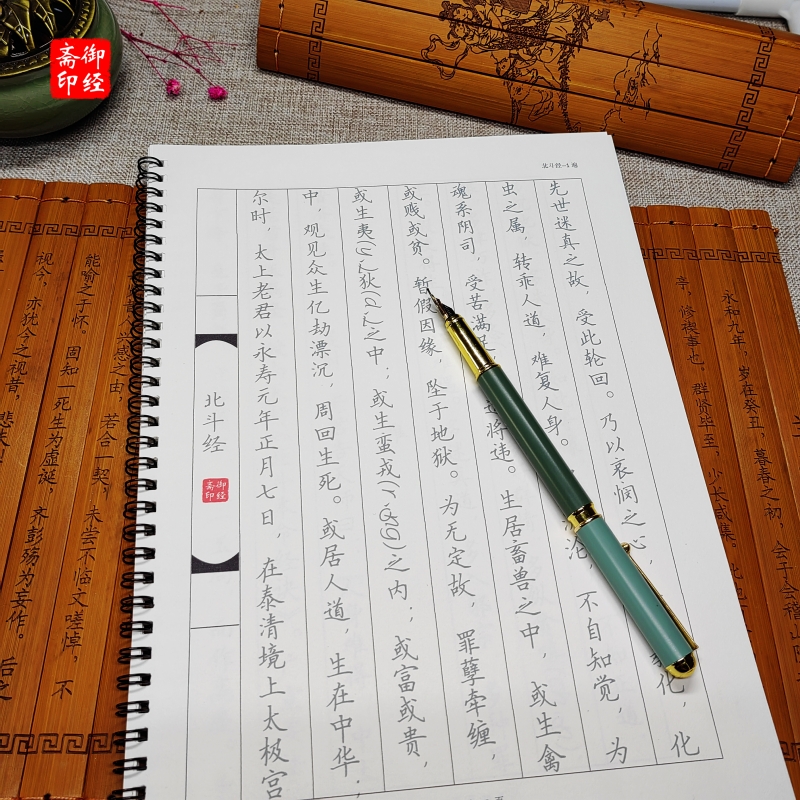 御经斋印
北斗经-1
北斗经
御经斋印
尔时，太上老君以永寿元年正月七日，在泰清境上太极宫
中，观见众生亿劫漂沉，周回生死。或居人道，生在中华，
或生夷(yí)狄(dí)之中；或生蛮戎(róng)之内；或富或贵，
或贱或贫。暂假因缘，坠于地狱。为无定故，罪孽牵缠，
魂系阴司，受苦满足 将违。生居畜兽之中，或生禽
虫之属，转乖人道，难复人身。 沦，不自知觉，为
先世迷真之故，受此轮回。乃以哀悯之心， 化，化
永和九年，岁在癸丑，暮春之初，会于会稽山阴
亭，修禊事也。群贤毕至，少长咸集。此地
兴感之由，若合一契，未尝不临文嗟悼，不
能喻之于怀。固知一死生为虚诞，齐彭殇为妄作。后之
视今，亦犹今之视昔，悲夫！